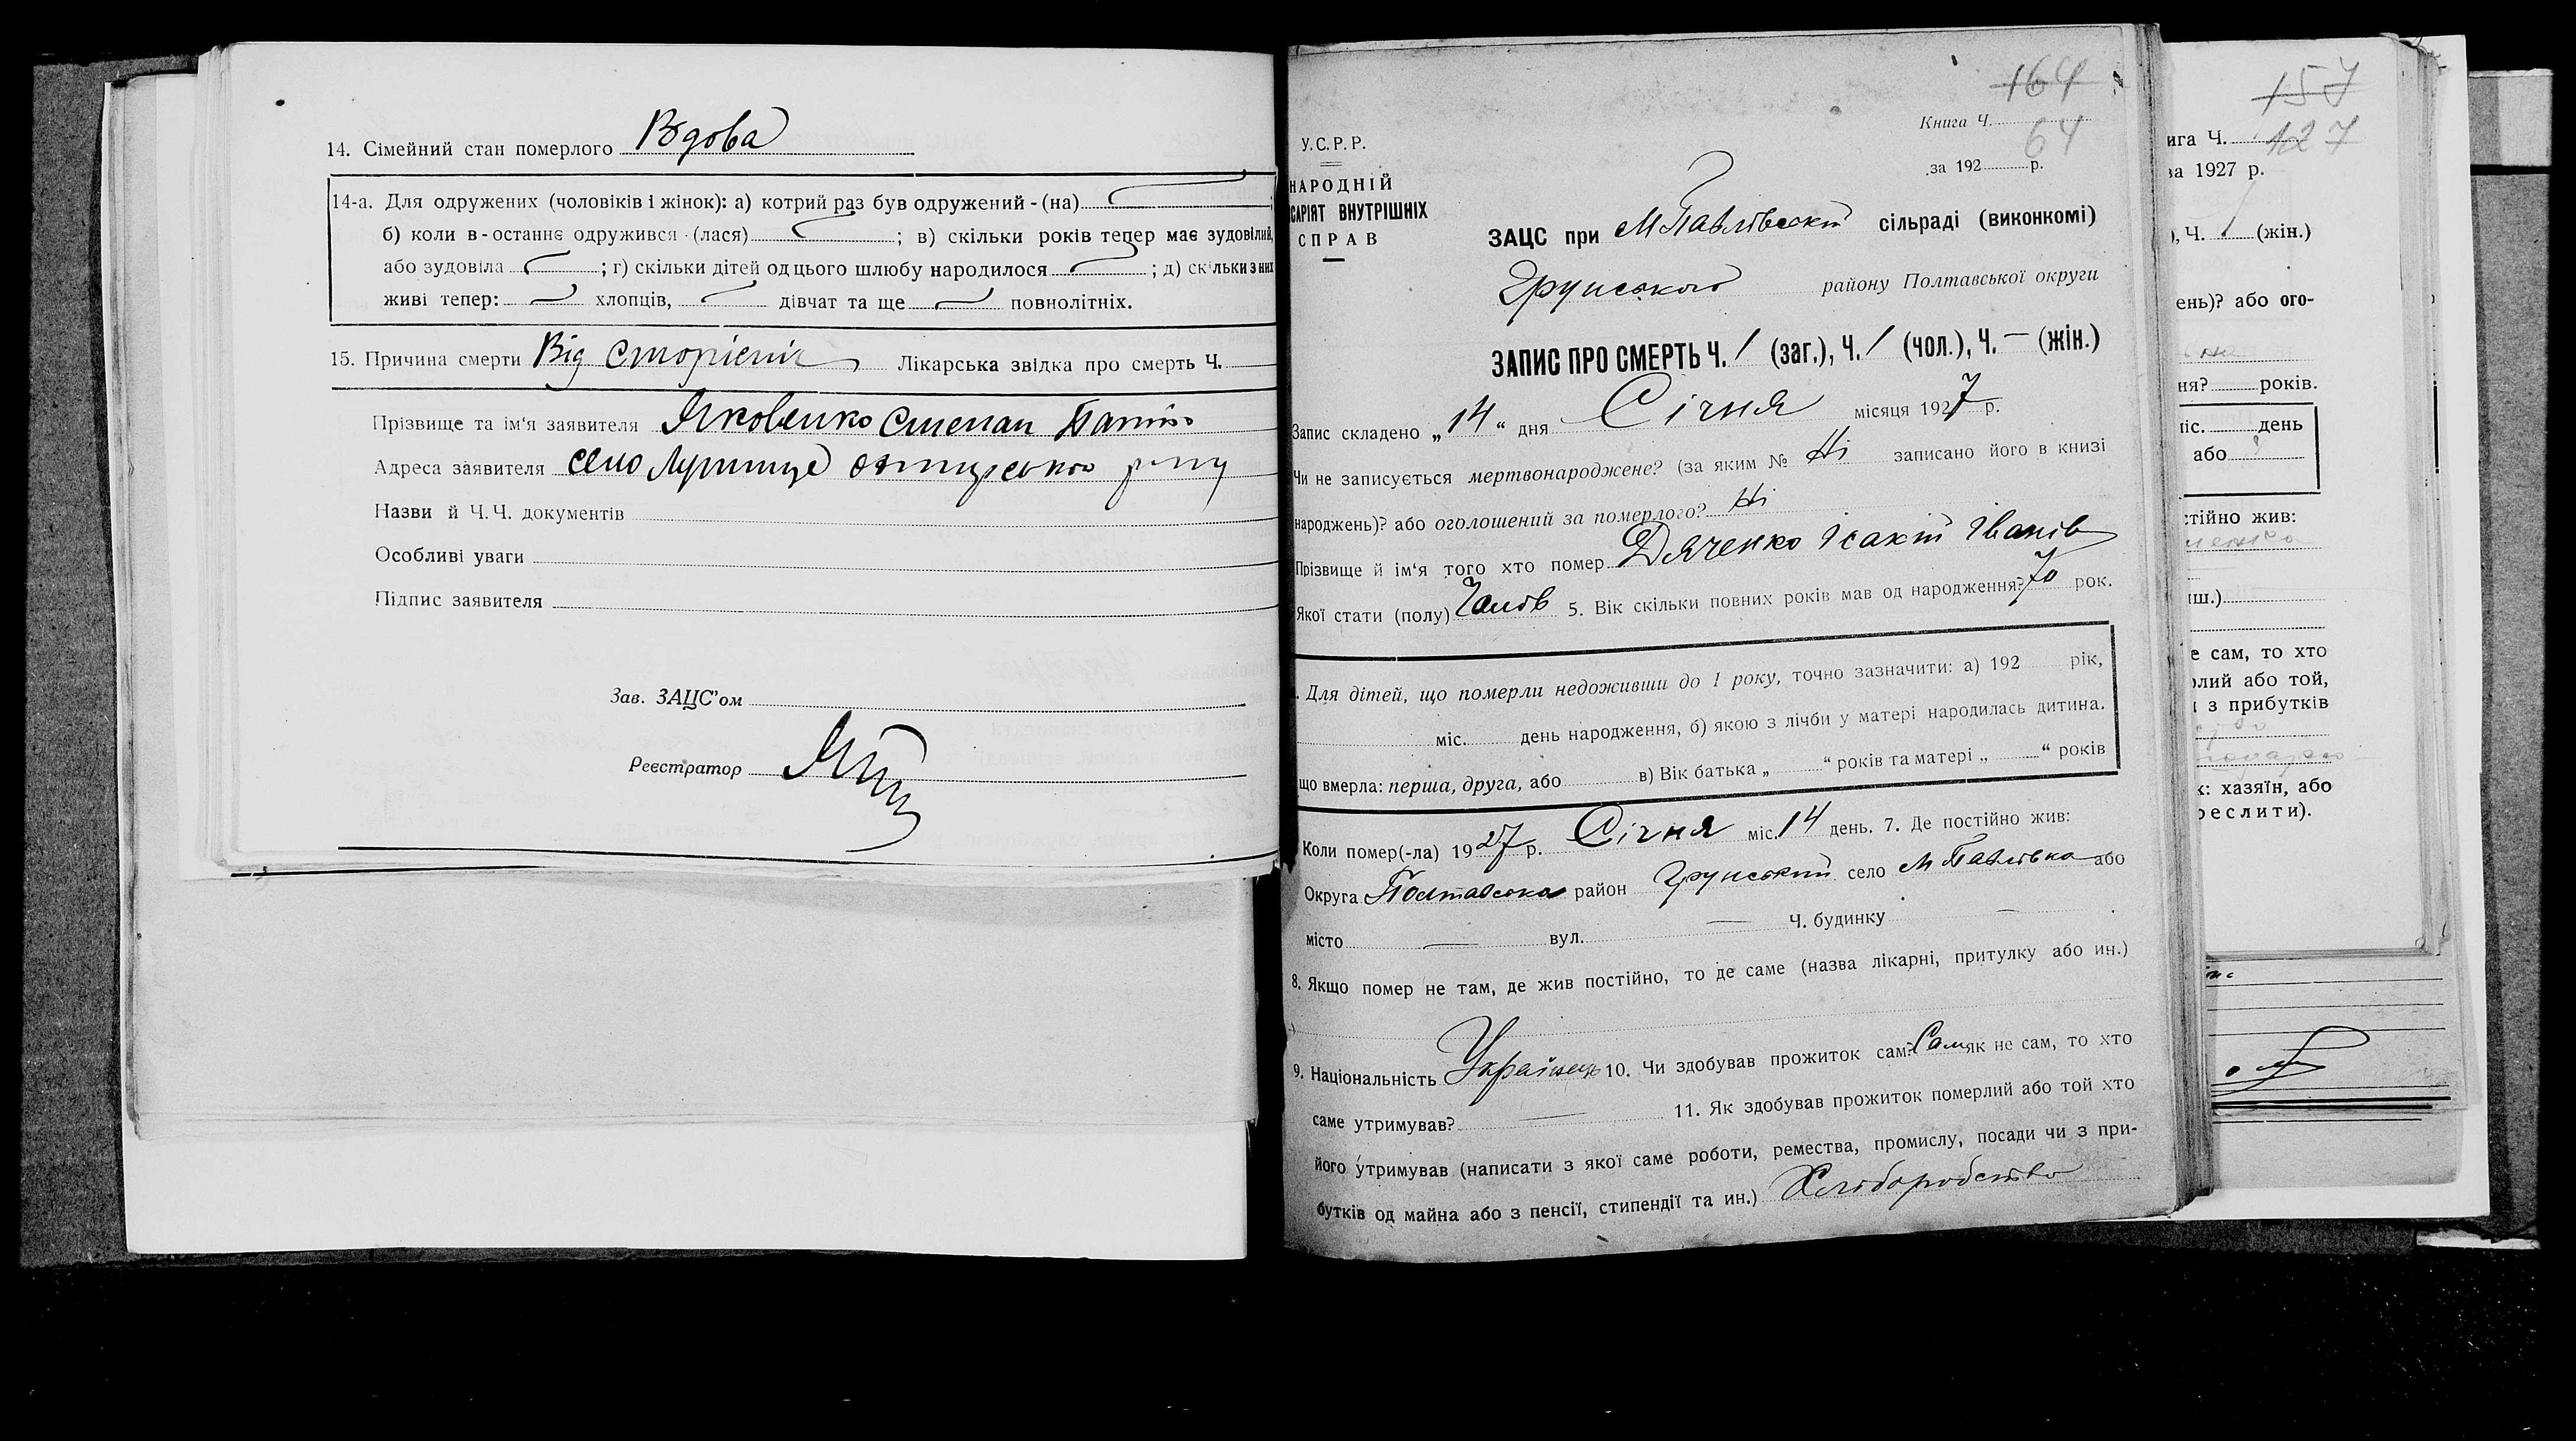 14. Сімейний стан померлого Вдова
14-а. Для одружених (чоловіків і жінок): а) котрий раз був одружений - (на)
б) коли в-останнє одружився - (лася) ; в) скільки років тепер має зудовілий,
або зудовіла ; г) скільки дітей од цього шлюбу народилося ; д) скільки з них
живі тепер: хлопців, дівчат та ще повнолітніх.
15. Причина смерти Від Лікарська звідка про смерть Ч.
Прізвище та ім'я заявителя Яковенко Степан
Адреса заявителя село
Назви й Ч.Ч. документів
Особливі уваги
Підпис заявителя
Зав. ЗАЦС'ом
Реєстратор
164
Книга Ч.
64
за 192 р.
У.С.Р.Р.
НАРОДНІЙ
САРІЯТ ВНУТРІШНІХ
СПРАВ
ЗАЦС при М Павлівській сільраді (виконкомі)
Грунського району Полтавської округи
ЗАПИС ПРО СМЕРТЬ Ч. 1 (заг.), Ч. 1 (чол.), Ч. — (жін.)
Запис складено „14“ дня Січня місяця 1927 р.
Чи не записується мертвонароджене? (за яким № Ні записано його в книзі
народжень)? або оголошений за померлого? Ні
Прізвище й ім'я того хто помер Дяченко Ісакій Іванів
Якої стати (полу) 5. Вік скільки повних років мав од народження? 70 рок.
. Для дітей, що померли недоживши до 1 року, точно зазначити: а) 192 рік,
міс. день народження, б) якою з лічби у матері народилась дитина.
що вмерла: перша, друга, або в) Вік батька „ “ років та матері „ “ років
Коли помер(-ла) 1927 р. Січня міс. 14 день. 7. Де постійно жив:
Округа Полтавська район Грунський село М Павлівка або
місто — вул. — Ч. будинку —
8. Якщо помер не там, де жив постійно, то де саме (назва лікарні, притулку або ин.)
9. Національність Українець 10. Чи здобував прожиток сам? Сам як не сам, то хто
саме утримував? — 11. Як здобував прожиток померлий або той хто
його утримував (написати з якої саме роботи, ремества, промислу, посади чи з при-
бутків од майна або з пенсії, стипендії та ин.) Хліборобство
157
ига Ч. 127
за 1927 р.
), Ч. 1 (жін.)
ень)? або ого-
ня? років.
міс. день
або
стійно жив:
иш.)
е сам, то хто
олий або той,
и з прибутків
к: хазяїн, або
реслити).